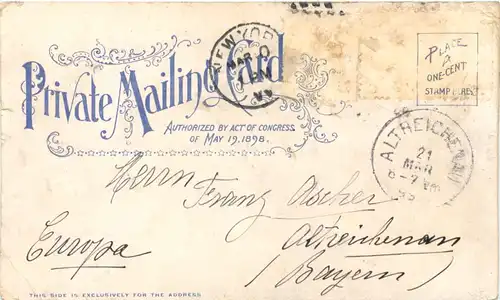 Private Mailing Card
AUTHORIZED BY ACT OF CONGRESS
OF MAY 19, 1898.
NEW YORK
MAR
PM
PLACE
A
ONE-CENT
STAMP HERE
ALTREICHENAU
21
MAR
Herrn Franz
Altreichenau
Europa
(Bayern)
THIS SIDE IS EXCLUSIVELY FOR THE ADDRESS